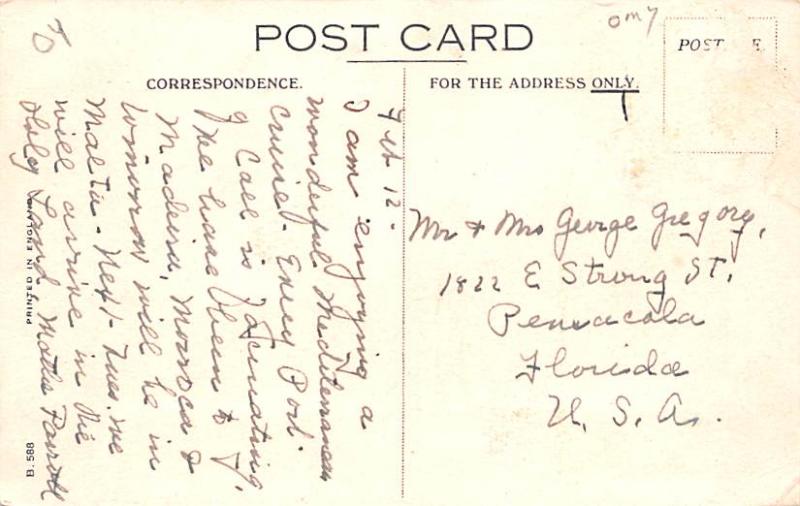 POST CARD
CORRESPONDENCE.
FOR THE ADDRESS ONLY.
Feb 12-
I am enjoying a
wonderful Mediterranean
cruise. Every Port
of Call is fascinating.
We have been to
Madeira, Morocco &
tomorrow will be in
Malta - Next Tues. we
will arrive in the
Holy Land. Mattie
Mr & Mrs George Gregory,
1822 E Strong St,
Pensacola
Florida
U. S. A.
PRINTED IN ENGLAND
B. 588